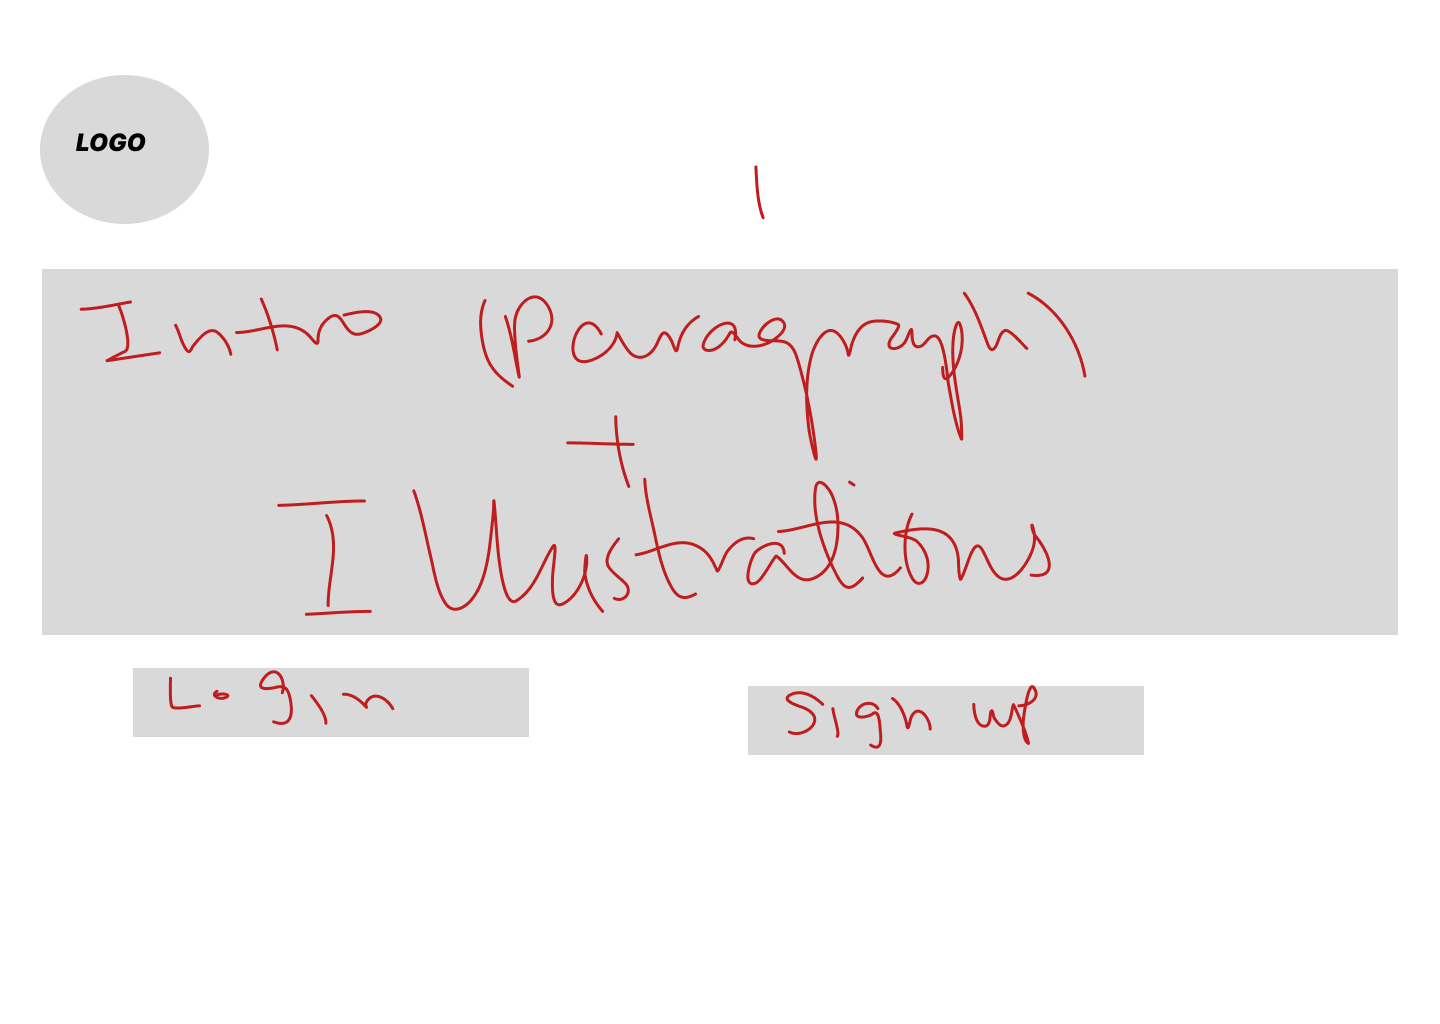 LOGO
Intro (Paragraph)
+
Illustrations
Login
Sign up